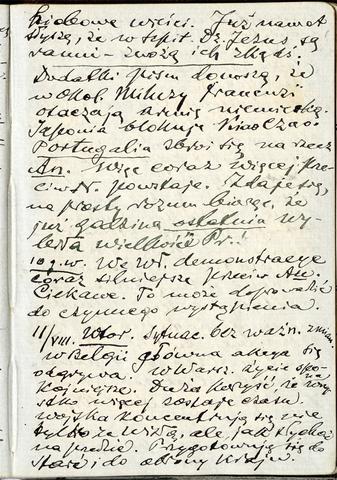 Hiobowe wieści. Już nawet
słyszą, że w szpit. Dz. Jezus są
ranni - zwożą ich skądś.
Dodatki pism donoszą, że
w okol. Miluzy Francuzi
otaczają armię niemiecką.
Japonia blokuje Kiaoczao.
Portugalia zbroi się na rzecz
An. Więc coraz więcej prze-
ciwdr. powstaje. Zdaje się,
na prosty rozum biorąc, że
już godzina ostatnia wy-
biła wielkości Pr.!
10 g. w. We Wł. demonstracye
coraz silniejsze przeciw Au.
Ciekawe. To może doprowadzić
do czynnego wystąpienia
11/VIII. Wtor. Sytuac. bez ważn. zmian.
w Belgii główna akcya się
odgrywa. w Warsz. życie spo-
kojniejsze. Duża korzyść, że
więcej zostaje czasu.
wojska koncentrują się nie
tylko za Wisłą, ale, jak słychać
na przedzie. Przygotowują się do
starć i do obrony kraju.